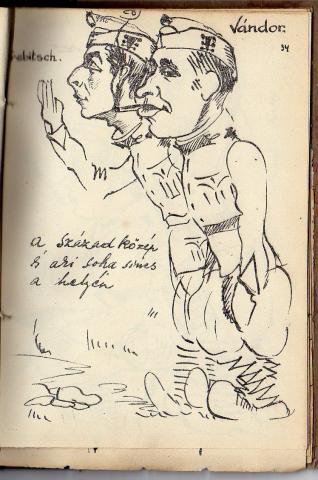 Vándor.
34
a század közép
és aki soha sincs
a helyén